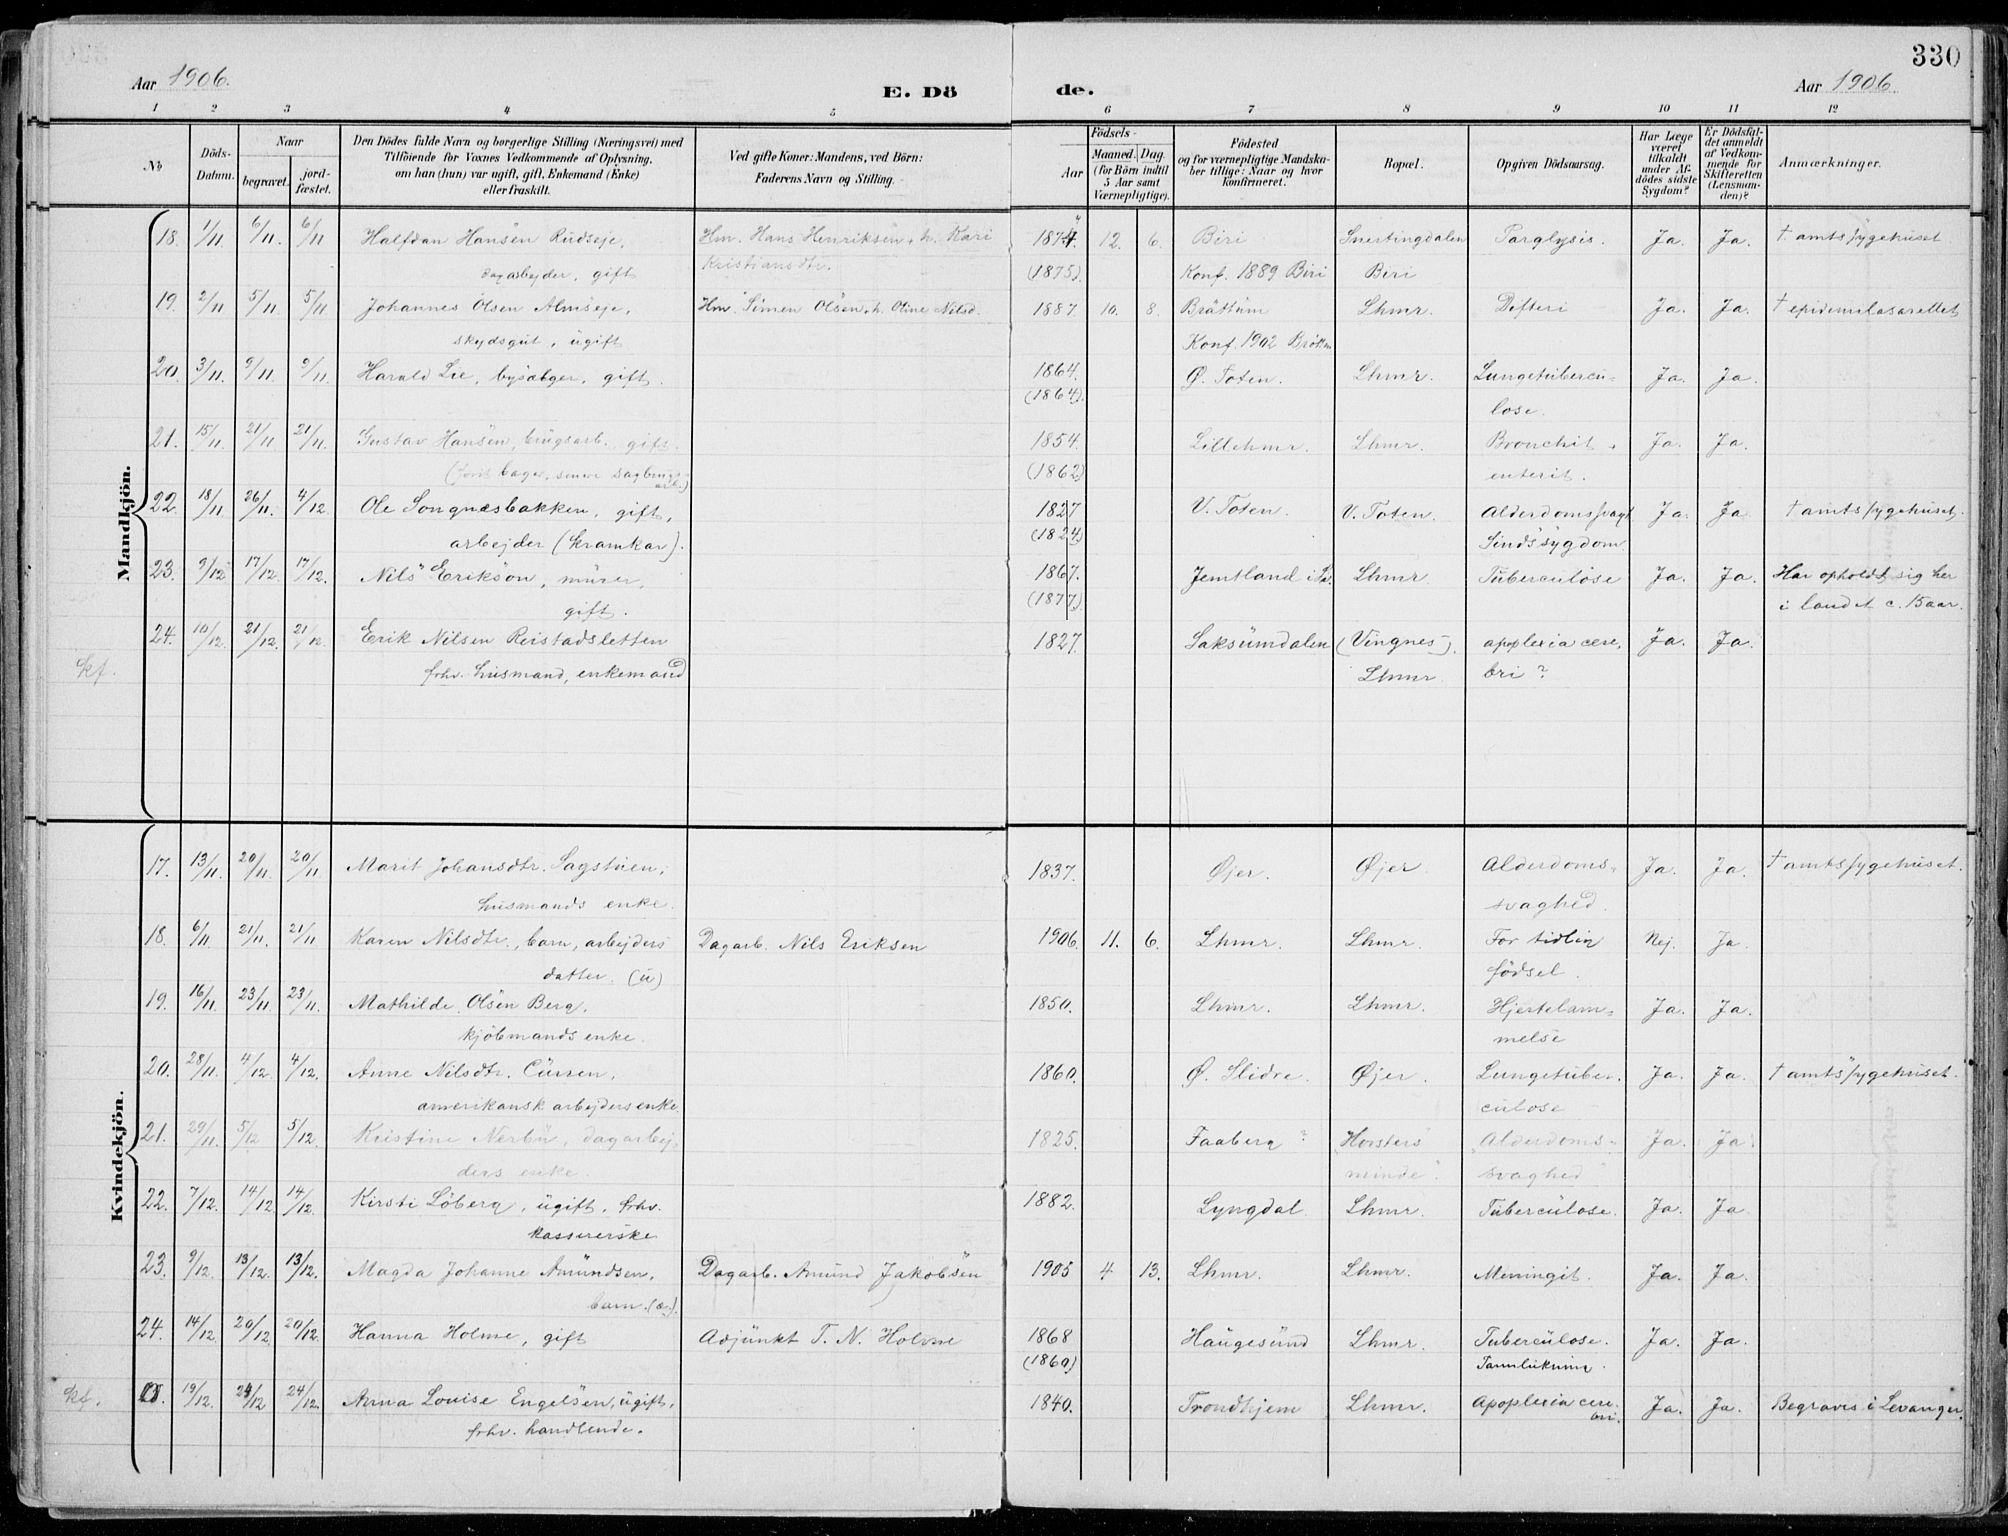 330
Aar 1906.
E. Dö
de.
Aar 1906.
1 2 3 4 5 6 7 8 9 10 11 12
No
Döds-Datum.
Naar
begravet.
jord-fæstet.
Den Dödes fulde Navn og borgerlige Stilling (Næringsvei) med
Tilföiende for Voxnes Vedkommende af Oplysning,
om han (hun) var ugift, gift, Enkemand (Enke)
eller fraskilt.
Ved gifte Koner: Mandens, ved Börn:
Faderens Navn og Stilling.
Födsels-
Aar
Maaned.
Dag.
(for Börn indtil
5 Aar samt
Værnepligtige).
Födested
og for værnepligtige Mandska-
ber tillige: Naar og hvor
konfirmeret.
Bopæl.
Opgiven Dödsaarsag.
Har Læge
været
tilkaldt
under Af-
dödes sidste
Sygdom?
Er Dödsfal-
det anmeldt
af Vedkom-
mende for
Skifteretten
(Lensman-
den)?
Anmærkninger.
Mandkjön.
18. 1/11 6/11. 6/11 Halfdan Hansen Rudseje, Hm. Hans Henriksen + h. Kari 1874 12. 6. Biri Snertingdalen Paralysis. Ja. Ja. † amtssygehuset
dagarbejder, gift Kristiansdtr. (1875). Konf. 1889 Biri Biri
19. 2/11 5/11 5/11 Johannes Olsen Almseje, Hm. Simen Olsen + h. Oline Nilsd. 1887. 10. 8. Bröttum Lhmr. Difteri Ja. Ja. † epidemilasarettet
skydsgut, ugift Konf. 1902 Bröttm
20. 3/11. 9/11. 9/11. Harald Lie, bysælger, gift. 1864. Ø. Toten. Lhmr. Lungetubercu- Ja. Ja.
(1864). lose.
21. 15/11. 21/11 21/11. Gustav Hansen, brugsarb. gift. 1854. Lillehmr. Lhmr. Bronchit + Ja. Ja.
bager, senere sagbrugs (1862) enterit.
arb.)
22. 18/11. 26/11. 4/12. Ole Songnæsbakken, gift, 1827 V. Toten. V. Toten. Alderdomssvagh Ja. Ja. † amtssygehuset.
arbejder (kramkar). (1824) Sindssygdom
23. 9/12 17/12. 17/12. Nils Erikson, murer, 1867. Jemtland i Sv. Lhmr. Tuberculose Ja. Ja. Har opholdt sig her
gift. (1877) i landet c. 15 aar.
24. 10/12. 21/12. 21/12. Erik Nilsen Reistadsletten 1827. Saksumdalen (Vingnes). apoplexia cere- Ja. Ja.
kf. frhv. husmand, enkemand Lhmr. bri?
Kvindekjön.
17. 13/11. 20/11. 20/11 Marit Johansdtr. Sagstuen, 1837. Øjer. Øjer Alderdoms- Ja. Ja. † amtssygehuset.
husmands enke. svaghed
18. 6/11. 21/11. 21/11 Karen Nilsdtr., barn, arbejders Dagarb. Nils Eriksen 1906. 11. 6. Lhmr. Lhmr. For tidlig Nej. Ja.
datter. (u) födsel.
19. 16/11 23/11 23/11. Mathilde Olsen Berg, 1850. Lhmr. Lhmr. Hjertelam- Ja. Ja.
kjöbmands enke. melse
20. 28/11. 4/12. 4/12. Anne Nilsdtr. Cursen, 1860. Ø. Slidre. Øjer. Lungetuber- Ja. Ja. † amtssygehuset.
amerikansk arbejders enke. culose
21. 29/11. 5/12 5/12. Kristine Nerbu, dagarbej- 1825. Faaberg? "Horsters Alderdoms- Ja. Ja.
ders enke. minde". svaghed
22. 7/12. 14/12. 14/12. Kirsti Löberg, ugift, frhv. 1882. Lyngdal Lhmr. Tuberculose. Ja. Ja.
kassererske
23. 9/12. 13/12. 13/12. Magda Johanne Amundsen, Dagarb. Amund Jakobsen 1905 4 13. Lhmr. Lhmr. Meningit. Ja. Ja.
barn. (æ).
24. 14/12. 20/12. 20/12. Hanna Holme, gift Adjunkt T. N. Holme 1868 Haugesund Lhmr. Tuberculose. Ja. Ja.
(1860)
kf. 19/12. 24/12 24/12. Anna Louise Engelsen, ugift, 1840. Trondhjem Lhmr. Apoplexia cere- Ja. Ja. Begraves i Levanger.
frhv. handlende. bri.